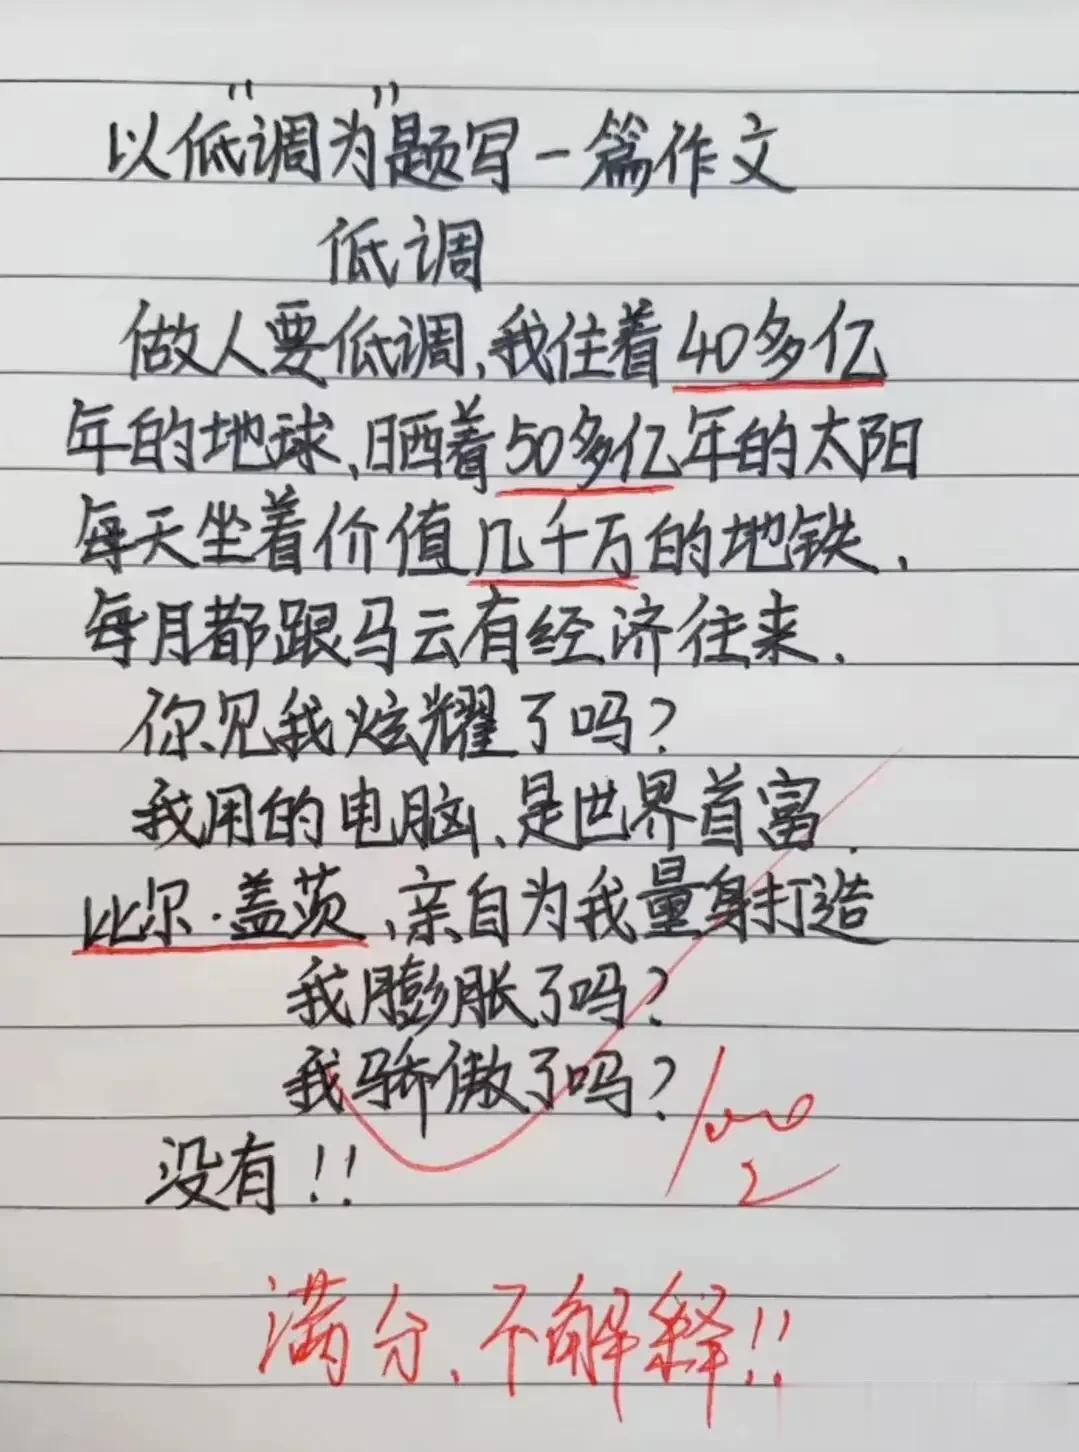 以“低调为”题写一篇作文
低调
做人要低调、我住着40多亿
年的地球、晒着50多亿年的太阳
每天坐着价值几千万的地铁、
每月都跟马云有经济往来、
你见我炫耀了吗?
我用的电脑、是世界首富、
比尔·盖茨、亲自为我量身打造
我膨胀了吗?
我骄傲了吗?
没有!!
100
满分、不解释!!